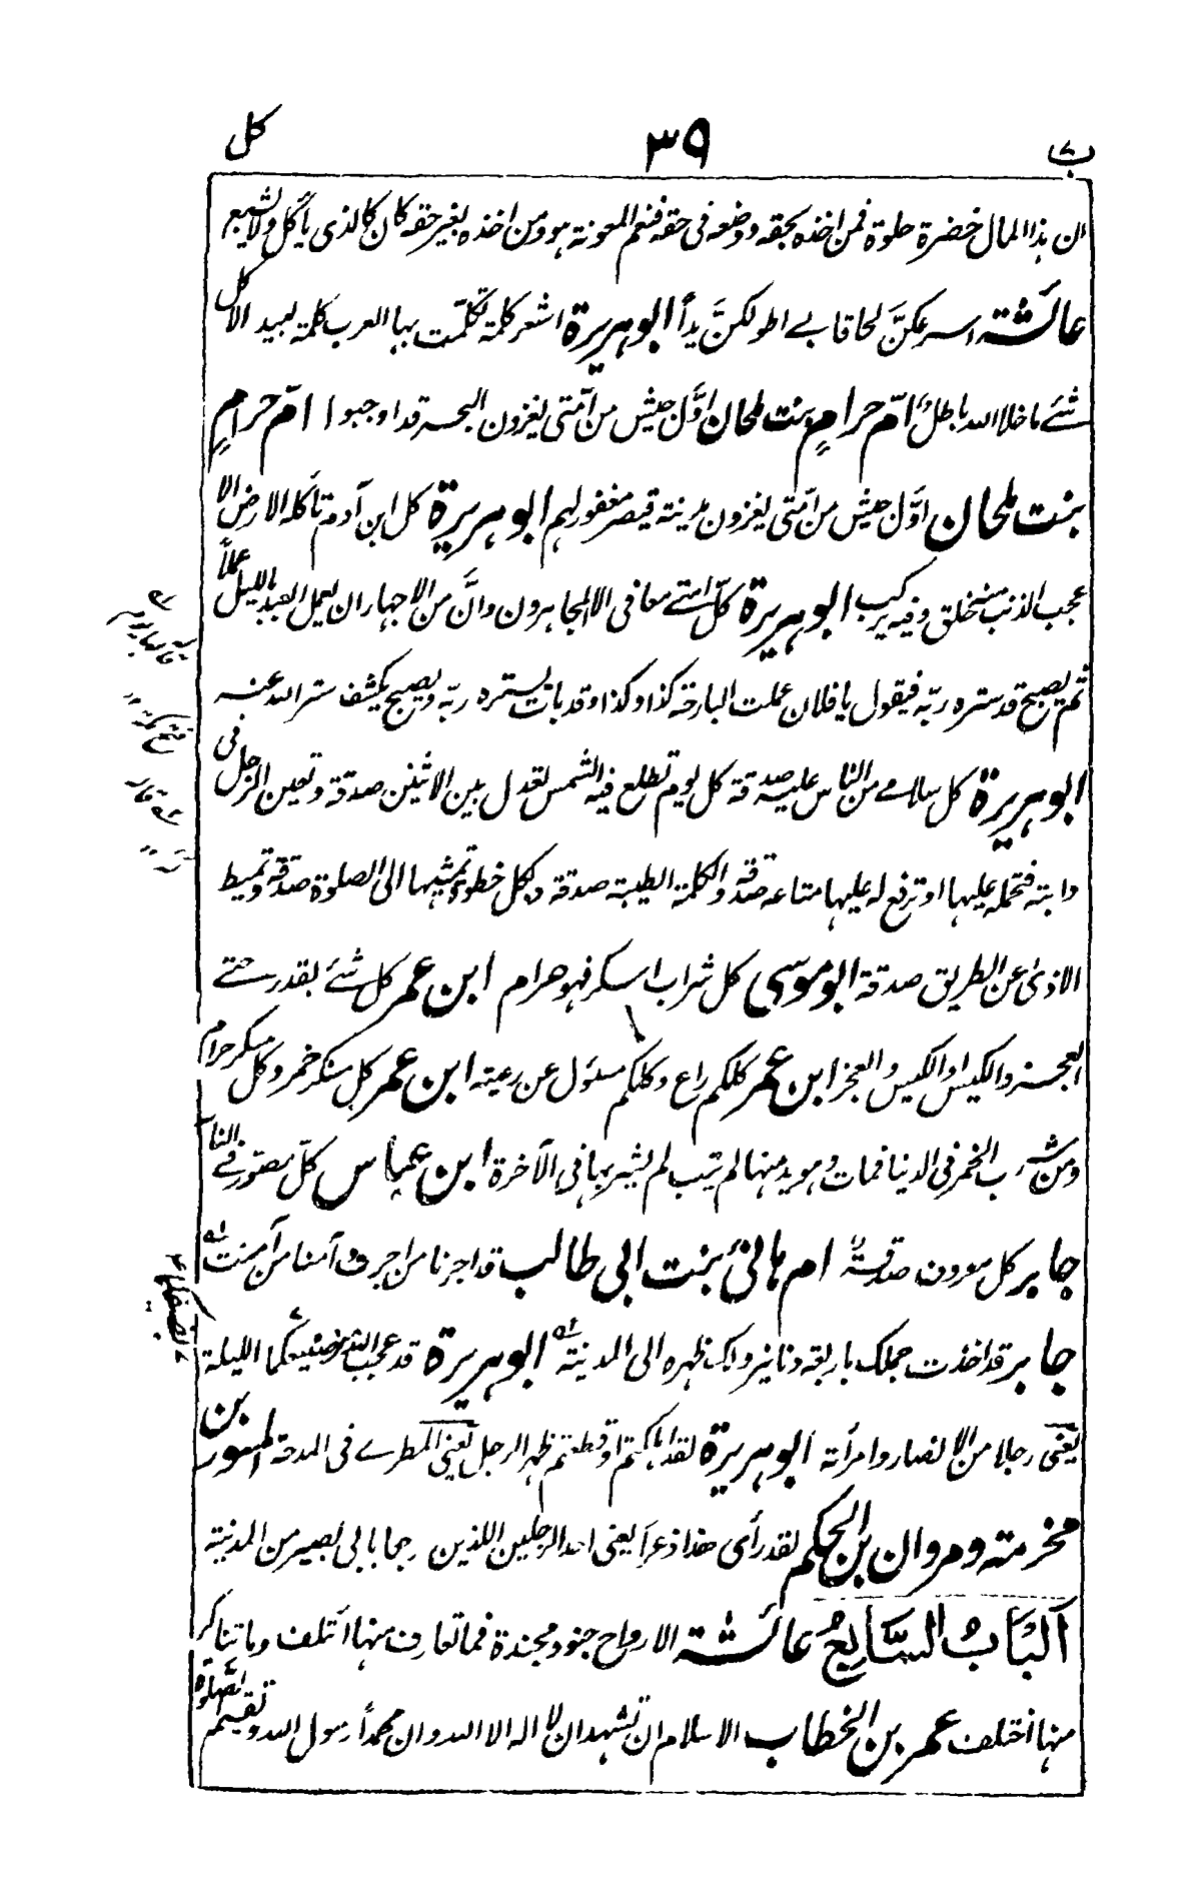 ب ٧ ٣٩ كل
ان هذا المال خضرة حلوة فمن اخذه بحقه ووضعه فى حقه فنعم المعونة هو ومن اخذه بغير حقه كان كالذى يأكل ولا يشبع
عائشة اسرعكنّ لحاقا بى اطولكنّ يداً ابوهريرة اشعر كلمة تكلّمت بها العرب كلمة لبيد الا كل
شئ ما خلا الله باطل امّ حرامٍ بنت ملحان اوّل جيش من امّتى يغزون البحر قد اوجبوا امّ حرامٍ
بنت ملحان اوّل جيش من امّتى يغزون مدينة قيصر مغفور لهم ابوهريرة كل ابن آدم تأكله الارض الا
عجب الذنب منه خلق وفيه يركب ابوهريرة كلّ امّتى معافى الا المجاهرون وانّ من الاجهار ان يعمل العبد بالليل عملاً
ثم يصبح قد ستره ربّه فيقول يا فلان عملت البارحة كذا وكذا وقد بات يستره ربّه ويصبح يكشف ستر الله عنه
ابوهريرة كل سلامى من الناس عليه صدقة كل يوم تطلع فيه الشمس تعدل بين الاثنين صدقة وتعين الرجل فى
دابته فتحمله عليها او ترفع له عليها متاعه صدقة والكلمة الطيبة صدقة وبكل خطوة تمشيها الى الصلوة صدقة وتميط
الاذى عن الطريق صدقة ابوموسى كل شراب اسكر فهو حرام ابن عمر كل شئ بقدر حتى
العجز والكيس او الكيس والعجز ابن عمر كلكم راع وكلكم مسئول عن رعيته ابن عمر كل مسكر خمر وكل مسكر حرام
ومن شرب الخمر فى الدنيا فمات وهو يدمنها لم يتب لم يشربها فى الآخرة ابن عباس كلّ مصوّر فى النار
جابر كل معروف صدقة ام هانئ بنت ابى طالب قد اجرنا من اجرت وآمنا من آمنت
جابر قد اخذت جملك باربعة دنانير ولك ظهره الى المدينة ابوهريرة قد عجب الله من صنيعكما الليلة
يعنى رجلا من الانصار وامرأته ابوهريرة لقد اهلكتم او قطعتم ظهر الرجل يعنى المطرى فى المدحة المسور بن
مخرمة ومروان بن الحكم لقد رأى هذا ذعراً يعنى احد الرجلين اللذين رجعا بابى بصير من المدينة
اَلبَابُ السَّابِعُ عائشة الارواح جنود مجندة فما تعارف منها ائتلف وما تناكر
منها اختلف عمر بن الخطاب الاسلام ان تشهد ان لا اله الا الله وان محمداً رسول الله وتقيم الصلوة